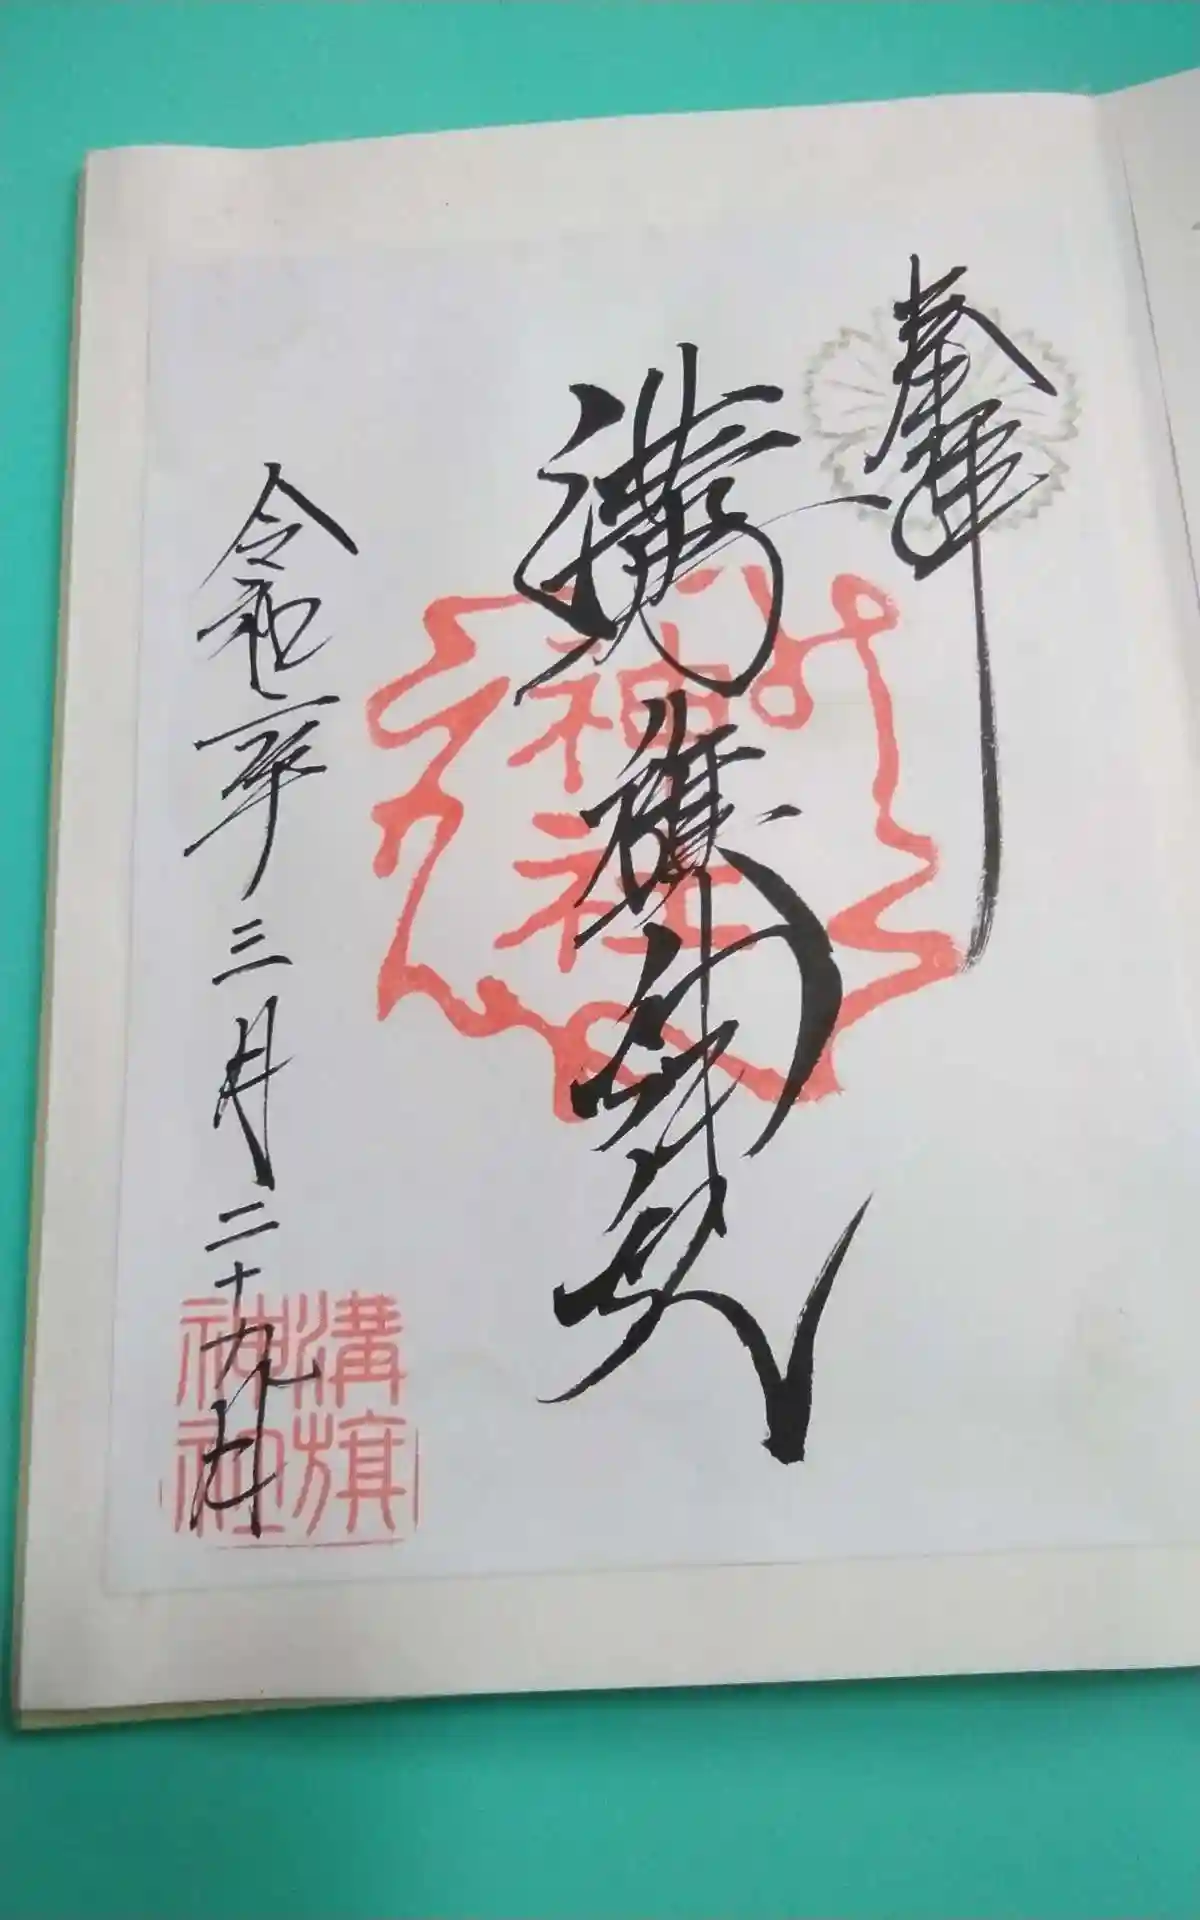 奉拝
溝旗神社
神社
令和二年三月二十九日
溝旗
神社